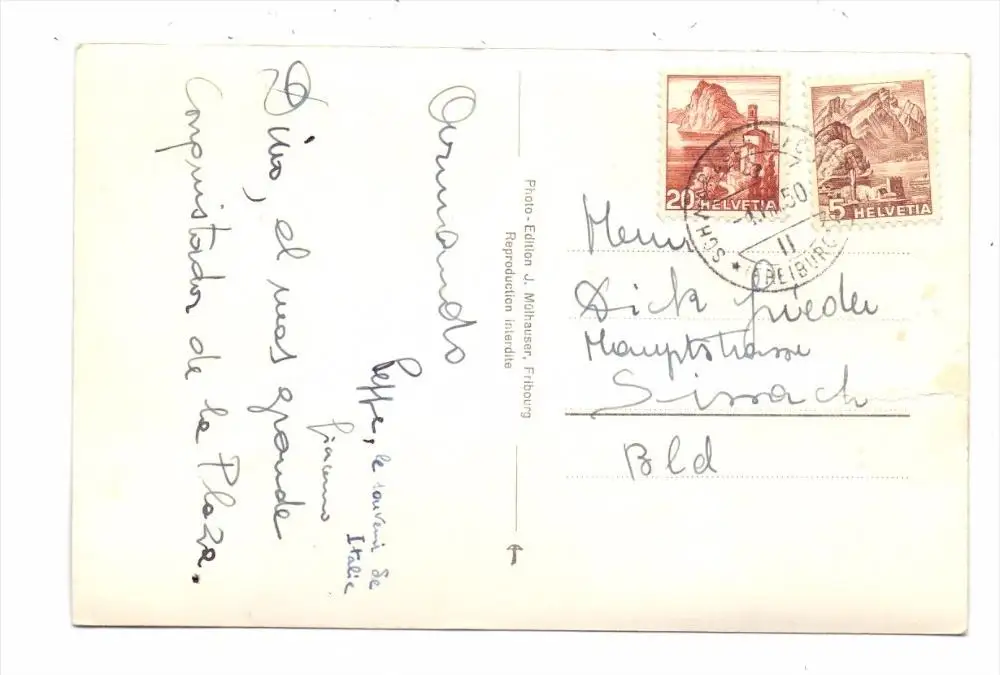 Armando
Peppe, le souvenir de
Italie
Giacomo
Dino, el mas grande
Conquistador de la Plaza.
Photo-Edition J. Mülhauser, Fribourg
Reproduction interdite
20 HELVETIA
5 HELVETIA
50
II
(FREIBURG)
Herrn
Dick Grieder
Hauptstrasse
Sissach
Bld